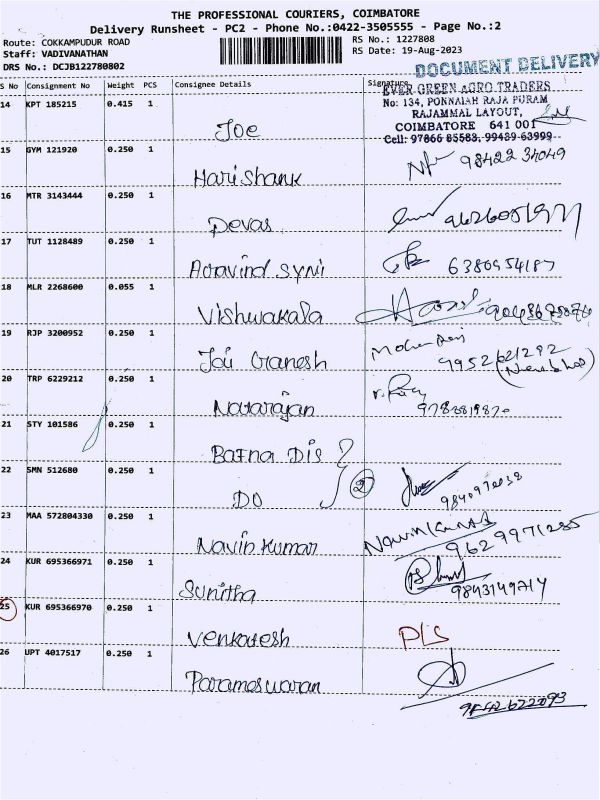 THE PROFESSIONAL COURIERS, COIMBATORE
Delivery Runsheet - PC2 - Phone No.:0422-3505555 - Page No.:2
Route: COKKAMPUDUR ROAD
RS No.: 1227808
Staff: VADIVANATHAN
RS Date: 19-Aug-2023
DRS No.: DCJB122780802
DOCUMENT DELIVERY
S No Consignment No Weight PCS Consignee Details Signature
EVER GREEN AGRO TRADERS
No: 134, PONNAIAH RAJA PURAM
RAJAMMAL LAYOUT,
COIMBATORE 641 001
Cell: 97866 85583, 99439 63999
14 KPT 185215 0.415 1 Joe
15 GYM 121920 0.250 1 Harishank 98422 34049
16 MTR 3143444 0.250 1 Devas
17 TUT 1128489 0.250 1 Aravind Syni 6380954187
18 MLR 2268600 0.055 1 Vishwakala
19 RJP 3200952 0.250 1 Jai Ganesh 9952621292
20 TRP 6229212 0.250 1 Natarajan
21 STY 101586 0.250 1 Bafna Dis
22 SMN 512680 0.250 1 DO 2
23 MAA 572804330 0.250 1 Navin Kumar Navin Kumar 9629971285
24 KUR 695366971 0.250 1 Sunitha 9843149714
25 KUR 695366970 0.250 1 Venkatesh PLS
26 UPT 4017517 0.250 1 Parameswaran